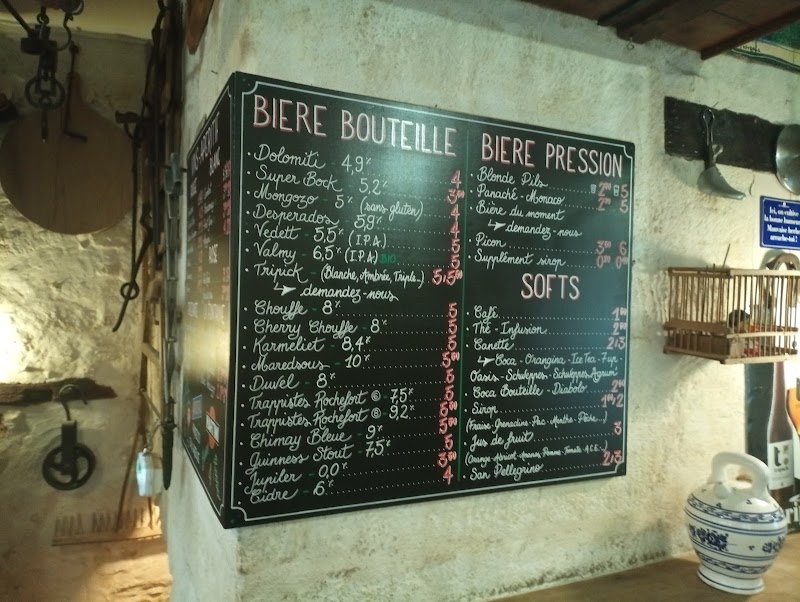 BIERE BOUTEILLE
· Dolomiti 4,9% 4
· Super Bock 5,2% 3⁵⁰
· Mongozo 5% (sans gluten) 4
· Desperados 5,9% 4
· Vedett 5,5% (I.P.A) 5
· Valmy 6,5% (I.P.A) BIO 5
· Tripick (Blanche, Ambrée, Triple..) 5/5⁵⁰
demandez-nous
· Chouffe - 8% 5
· Cherry Chouffe - 8% 5
· Karmeliet - 8,4% 5
· Maredsous - 10% 5⁵⁰
· Duvel - 8% 5
· Trappistes Rochefort ⑥ 7,5% 5
· Trappistes Rochefort ⑧ 9,2% 5⁵⁰
· Chimay Bleue - 9% 5⁵⁰
· Guinness Stout - 7,5% 5
· Jupiler - 0,0% 3⁵⁰
· Cidre - 6% 4
BIERE PRESSION
· Blonde Pils 2⁵⁰ 5
· Panaché - Monaco 2⁵⁰ 5
· Bière du moment
demandez-nous
· Picon 3⁵⁰ 6
· Supplément sirop
SOFTS
· Café
· Thé - Infusion
· Canette 2/3
Coca - Orangina - Ice Tea - 7up -
Oasis - Schweppes - Schweppes Agrum
· Coca Bouteille - Diabolo
· Sirop
(Fraise - Grenadine - Pac - Menthe - Pêche...)
· Jus de fruit 3
(Orange - Abricot - Ananas - Pomme - Tomate - A.C.E...)
· San Pellegrino 2/3
Ici, on cultive
la bonne humeur
Mauvaise herbe